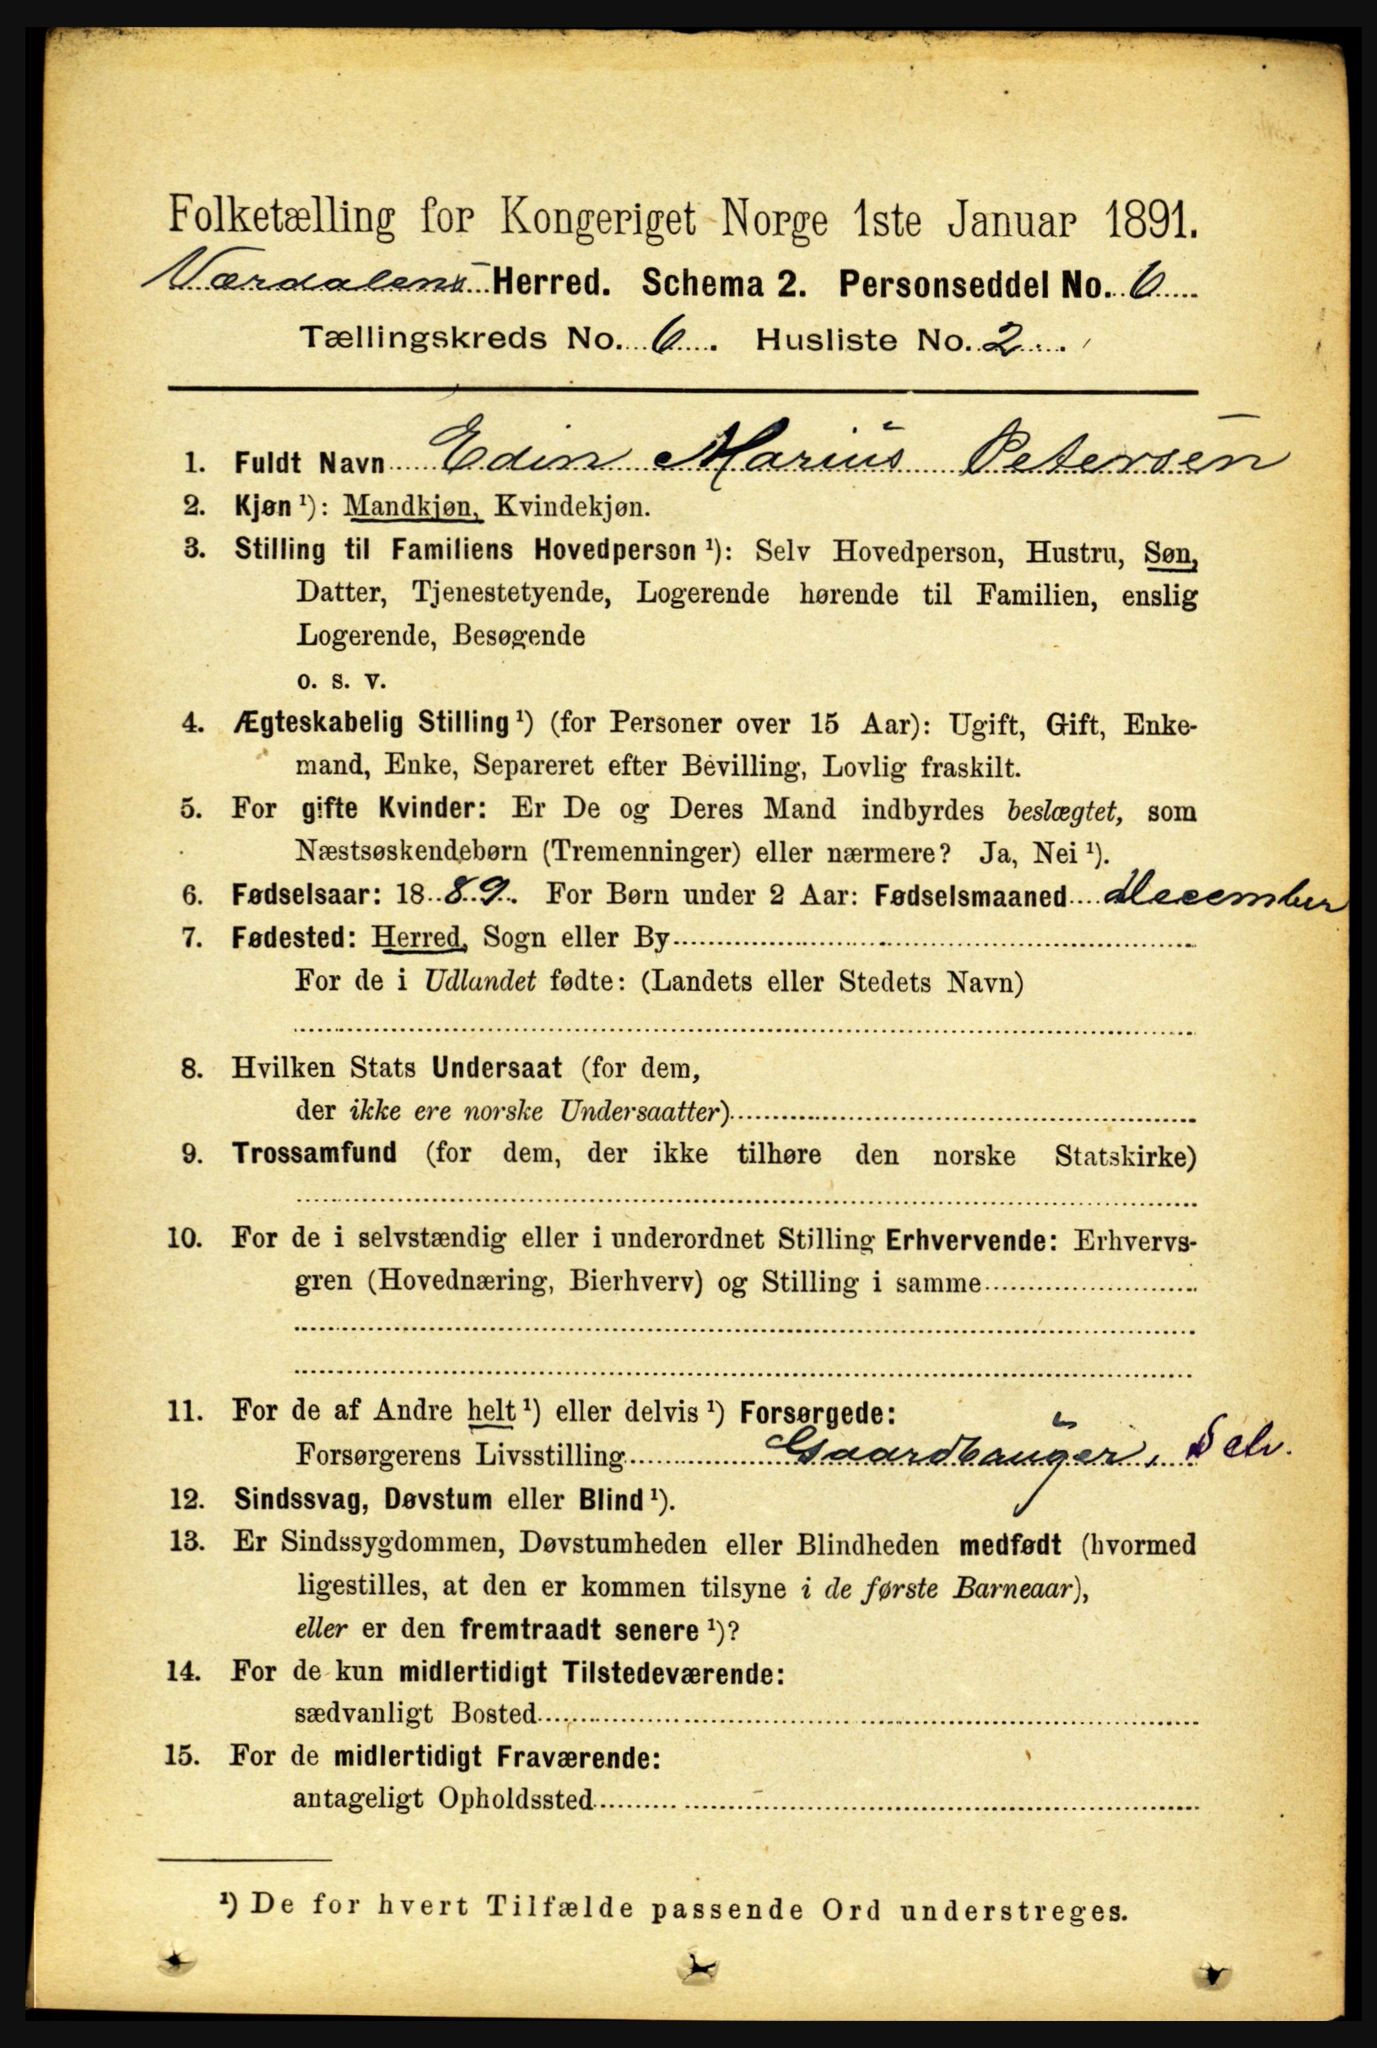 Folketælling for Kongeriget Norge 1ste Januar 1891.
Værdalens Herred. Schema 2. Personseddel No. 6
Tællingskreds No. 6. Husliste No. 2
1. Fuldt Navn Edin Marius Petersen
2. Kjøn ¹): Mandkjøn, Kvindekjøn.
3. Stilling til Familiens Hovedperson ¹): Selv Hovedperson, Hustru, Søn,
Datter, Tjenestetyende, Logerende hørende til Familien, enslig
Logerende, Besøgende
o. s. v.
4. Ægteskabelig Stilling ¹) (for Personer over 15 Aar): Ugift, Gift, Enke-
mand, Enke, Separeret efter Bevilling, Lovlig fraskilt.
5. For gifte Kvinder: Er De og Deres Mand indbyrdes beslægtet, som
Næstsøskendebørn (Tremenninger) eller nærmere? Ja, Nei ¹).
6. Fødselsaar: 1889. For Børn under 2 Aar: Fødselsmaaned December
7. Fødested: Herred, Sogn eller By
For de i Udlandet fødte: (Landets eller Stedets Navn)
8. Hvilken Stats Undersaat (for dem,
der ikke ere norske Undersaatter)
9. Trossamfund (for dem, der ikke tilhøre den norske Statskirke)
10. For de i selvstændig eller i underordnet Stilling Erhvervende: Erhvervs-
gren (Hovednæring, Bierhverv) og Stilling i samme
11. For de af Andre helt ¹) eller delvis ¹) Forsørgede:
Forsørgerens Livsstilling Gaardbruger, Selv.
12. Sindssvag, Døvstum eller Blind ¹).
13. Er Sindssygdommen, Døvstumheden eller Blindheden medfødt (hvormed
ligestilles, at den er kommen tilsyne i de første Barneaar),
eller er den fremtraadt senere ¹)?
14. For de kun midlertidigt Tilstedeværende:
sædvanligt Bosted
15. For de midlertidigt Fraværende:
antageligt Opholdssted
¹) De for hvert Tilfælde passende Ord understreges.